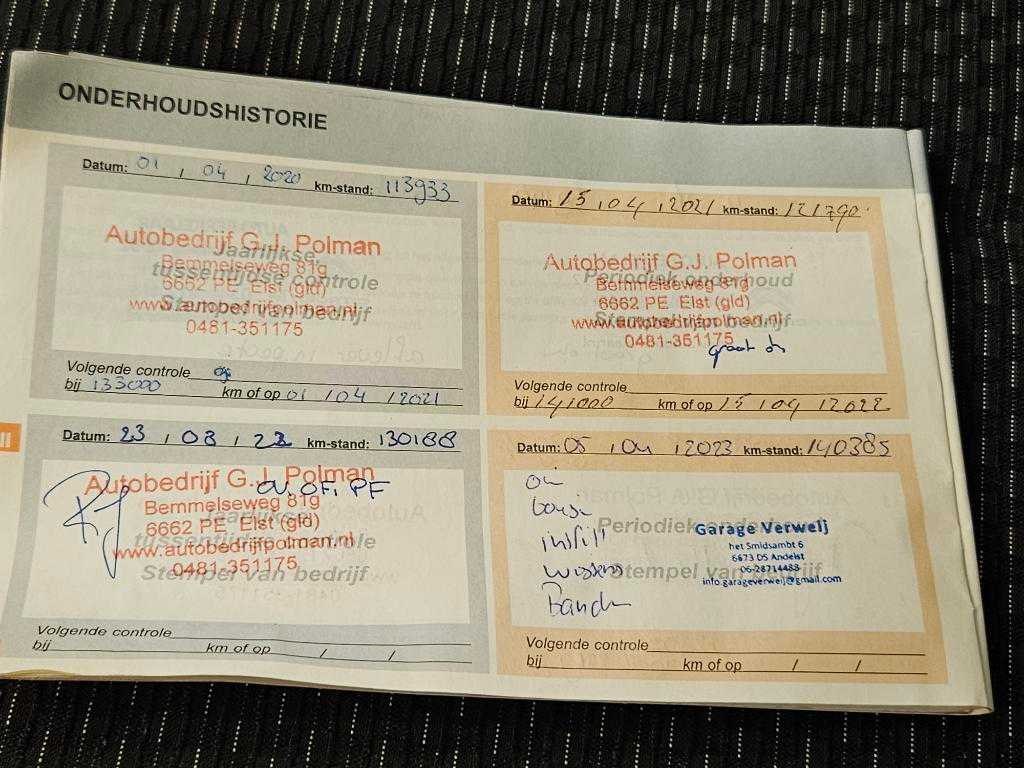 ONDERHOUDSHISTORIE
Datum: 01 / 04 / 2020 km-stand: 113933
Autobedrijf G.J. Polman
Jaarlijkse
Bemmelseweg 81g
tussentijdse controle
6662 PE Elst (gld)
www.autobedrijfpolman.nl
Stempel van bedrijf
0481-351175
Volgende controle
bij 133000 km of op 01 / 04 / 2021
Datum: 15 / 04 / 2021 km-stand: 121790
Autobedrijf G.J. Polman
Periodiek onderhoud
Bemmelseweg 81g
6662 PE Elst (gld)
www.autobedrijfpolman.nl
Stempel van bedrijf
0481-351175
groot
Volgende controle
bij 141000 km of op 15 / 04 / 2022
Datum: 23 / 03 / 22 km-stand: 130188
Autobedrijf G.J. Polman
OV, OF, PF
Bemmelseweg 81g
Jaarlijkse
6662 PE Elst (gld)
tussentijdse controle
www.autobedrijfpolman.nl
Stempel van bedrijf
0481-351175
Volgende controle
bij km of op / /
Datum: 05 / 04 / 2023 km-stand: 140385
Periodiek onderhoud
Garage Verweij
het Smidsambt 6
6673 DS Andelst
06-28714483
Stempel van bedrijf
info.garageverweij@gmail.com
Volgende controle
bij km of op / /